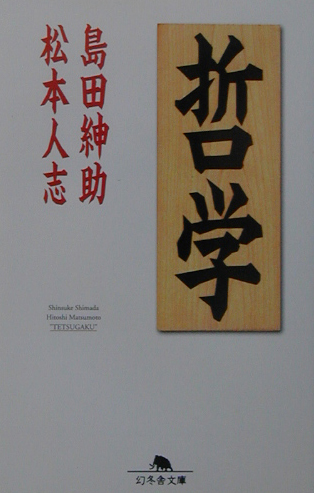 哲学
島田紳助
松本人志
Shinsuke Shimada
Hitoshi Matsumoto
"TETSUGAKU"
幻冬舎文庫